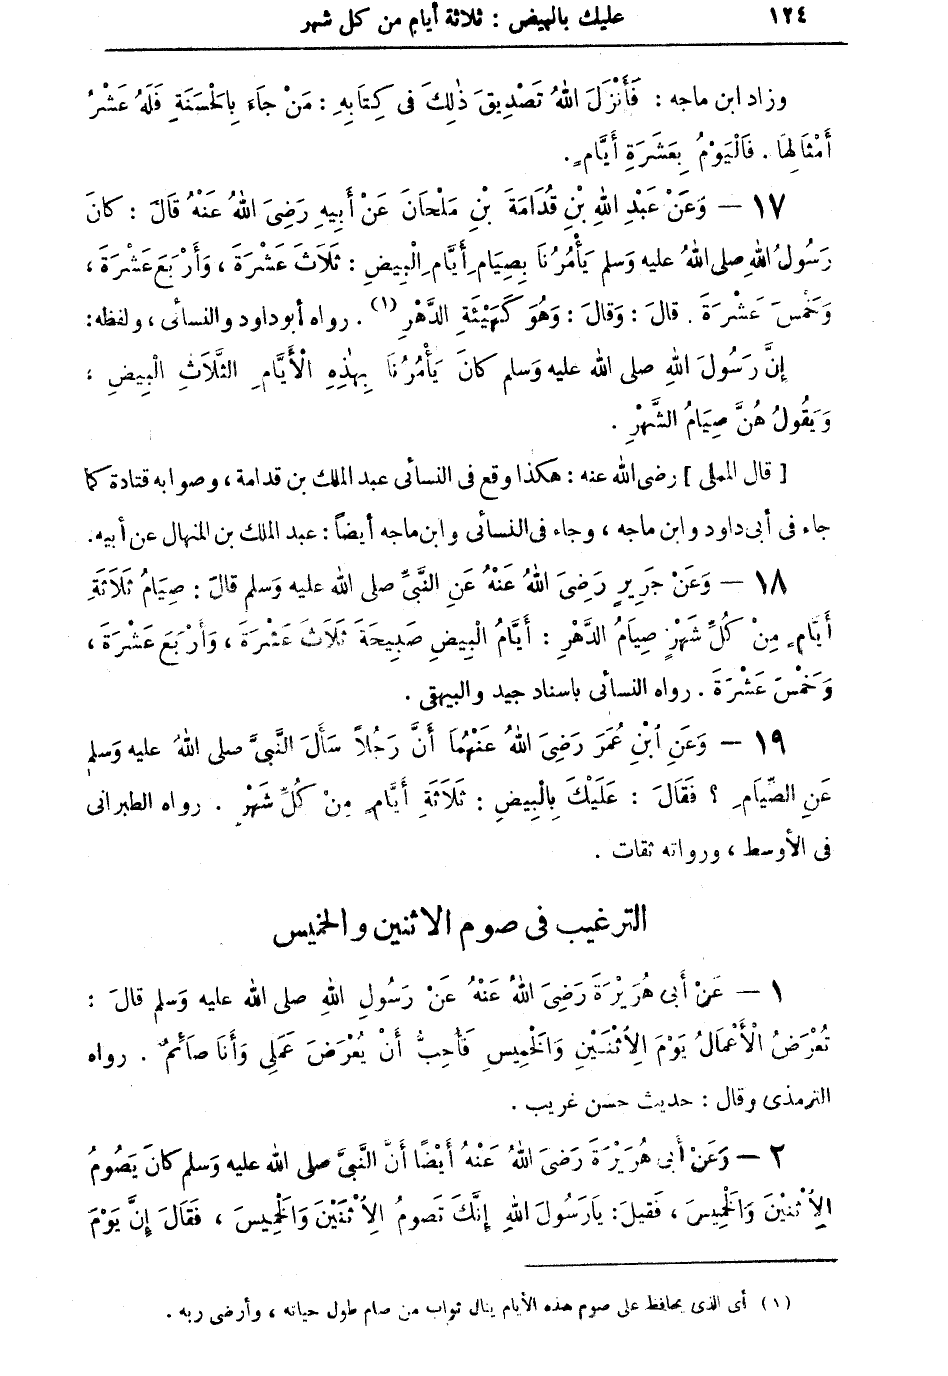 ١٢٤ عليك بالبيض : ثلاثة أيام من كل شهر
وزاد ابن ماجه : فَأَنْزَلَ اللهُ تَصْدِيقَ ذٰلِكَ فى كِتَابِهِ : مَنْ جَاءَ بِالْحَسَنَةِ فَلَهُ عَشْرُ
أَمْثَالِهَا . فَالْيَوْمُ بِعَشَرَةِ أَيَّامٍ .
١٧ — وَعَنْ عَبْدِ اللهِ بْنِ قُدَامَةَ بْنِ مَلْحَانَ عَنْ أَبِيهِ رَضِىَ اللهُ عَنْهُ قَالَ : كَانَ
رَسُولُ اللهِ صلى اللهُ عليه وَسلم يَأْمُرُنَا بِصِيَامِ أَيَّامِ الْبِيضِ : ثَلَاثَ عَشْرَةَ ، وَأَرْبَعَ عَشْرَةَ ،
وَخَمْسَ عَشْرَةَ . قالَ : وَقالَ : وَهُوَ كَهَيْئَةِ الدَّهْرِ (١) . رواه أبو داود والنسائى ، ولفظه :
إِنَّ رَسُولَ اللهِ صلى الله عليه وَسلم كانَ يَأْمُرُنَا بِهٰذِهِ الْأَيَّامِ الثَّلَاثِ الْبِيضِ ،
وَيَقُولُ هُنَّ صِيَامُ الشَّهْرِ .
[ قال المملى ] رضى الله عنه : هكذا وقع فى النسائى عبد الملك بن قدامة ، وصوابه قتادة كما
جاء فى أبى داود وابن ماجه ، وجاء فى النسائى وابن ماجه أيضاً : عبد الملك بن المنهال عن أبيه .
١٨ — وَعَنْ جَرِيرٍ رَضِىَ اللهُ عَنْهُ عَنِ النَّبِىِّ صلى الله عليه وَسلم قالَ : صِيَامُ ثَلَاثَةِ
أَيَّامٍ مِنْ كُلِّ شَهْرٍ صِيَامُ الدَّهْرِ : أَيَّامُ الْبِيضِ صَبِيحَةَ ثَلَاثَ عَشْرَةَ ، وَأَرْبَعَ عَشْرَةَ ،
وَخَمْسَ عَشْرَةَ . رواه النسائى باسناد جيد والبيهقى .
١٩ — وَعَنِ ابْنِ عُمَرَ رَضِىَ اللهُ عَنْهُمَا أَنَّ رَجُلاً سَأَلَ النَّبِىَّ صلى اللهُ عليه وَسلم
عَنِ الصِّيَامِ ؟ فَقَالَ : عَلَيْكَ بِالْبِيضِ : ثَلَاثَةِ أَيَّامٍ مِنْ كُلِّ شَهْرٍ . رواه الطبرانى
فى الأوسط ، ورواته ثقات .
الترغيب فى صوم الاثنين والخميس
١ — عَنْ أَبى هُرَيْرَةَ رَضِىَ اللهُ عَنْهُ عَنْ رَسُولِ اللهِ صلى الله عليه وَسلم قالَ :
تُعْرَضُ الْأَعْمَالُ يَوْمَ الِأثْنَيْنِ وَالْخَمِيسِ فَأُحِبُّ أَنْ يُعْرَضَ عَمَلِى وَأَنَا صَائمٌ . رواه
الترمذى وقال : حديث حسن غريب .
٢ — وَعَنْ أَبى هُرَيْرَةَ رَضِىَ اللهُ عَنْهُ أَيْضًا أَنَّ النَّبىَّ صلى الله عليه وَسلم كانَ يَصُومُ
الِأثْنَيْنَ وَالْخَمِيسَ ، فَقِيلَ : يَارَسُولَ اللهِ إِنَّكَ تَصومُ الِأثْنَيْنَ وَالْخَمِيسَ ، فَقَالَ إِنَّ يَوْمَ
(١) أى الذى يحافظ على صوم هذه الأيام ينال ثواب من صام طول حياته ، وأرضى ربه .